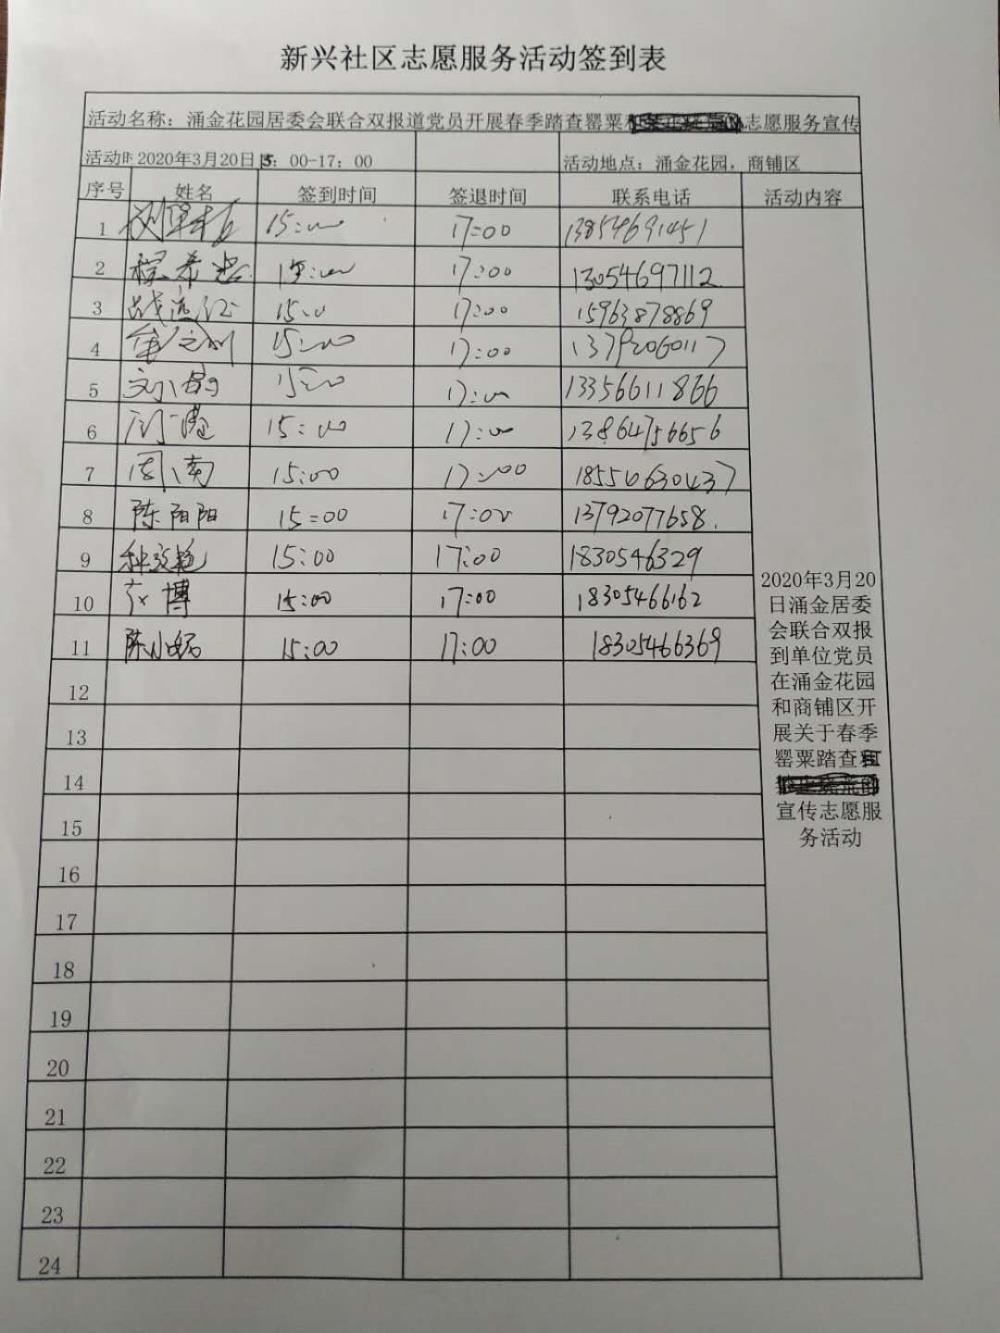 新兴社区志愿服务活动签到表
活动名称：涌金花园居委会联合双报道党员开展春季踏查罂粟 志愿服务宣传
活动时 2020年3月20日15：00-17：00 活动地点：涌金花园，商铺区
序号 姓名 签到时间 签退时间 联系电话 活动内容
1 15:00 17:00 13854691451
2 15:00 17:00 13054697112
3 战 15:0 17:00 15963878869
4 15:00 17:00 13792060117
5 刘 15:00 17:00 13356611866
6 15:00 17:00 13864756656
7 周南 15:00 17:00 18554630437
8 陈阳阳 15:00 17:00 13792077658.
9 15:00 17:00 1830546329
10 博 15:00 17:00 18305466162
11 陈小 15:00 17:00 18305466369
12
13
14
15
16
17
18
19
20
21
22
23
24
2020年3月20
日涌金居委
会联合双报
到单位党员
在涌金花园
和商铺区开
展关于春季
罂粟踏查
宣传志愿服
务活动